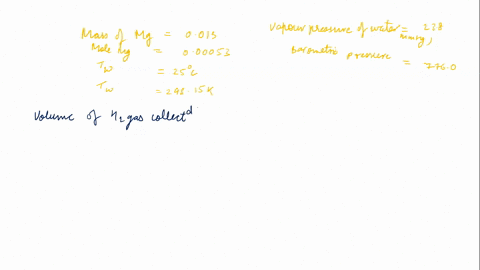 Mass of Mg = 0.013
Mole Mg = 0.00053
Tw = 25°C
Tw = 298.15K
Volume of H2 gas collectd
vapour pressure of water = 23.8 mmHg,
barometric pressure = 776.0